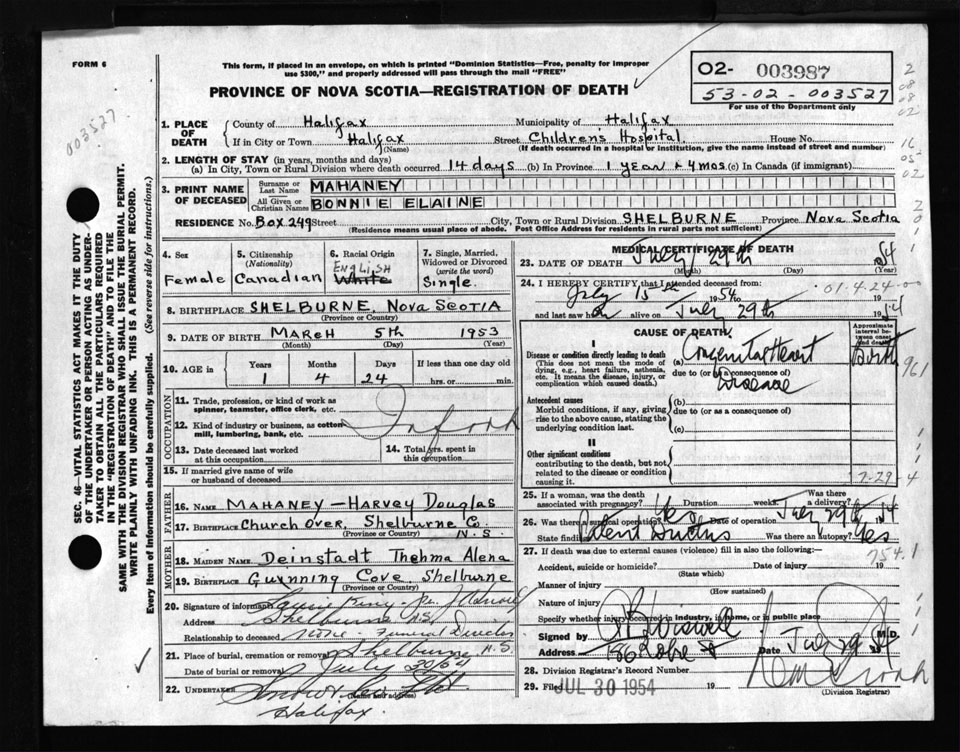 FORM 6
This form, if placed in an envelope, on which is printed "Dominion Statistics—Free, penalty for improper
use $300," and properly addressed will pass through the mail "FREE"
PROVINCE OF NOVA SCOTIA—REGISTRATION OF DEATH
02- 003987
53-02-003527
For use of the Department only
003527
SEC. 46—VITAL STATISTICS ACT MAKES IT THE DUTY
OF THE UNDERTAKER OR PERSON ACTING AS UNDER-
TAKER TO OBTAIN ALL THE PARTICULARS REQUIRED
IN THE "REGISTRATION OF DEATH" AND TO FILE THE
SAME WITH THE DIVISION REGISTRAR WHO SHALL ISSUE THE BURIAL PERMIT.
WRITE PLAINLY WITH UNFADING INK. THIS IS A PERMANENT RECORD.
Every item of Information should be carefully supplied. (See reverse side for instructions.)
1. PLACE OF DEATH County of Halifax Municipality of Halifax
If in City or Town Halifax (Name) Street Children's Hospital House No.
(If death occurred in a hospital or institution, give the name instead of street and number)
2. LENGTH OF STAY (in years, months and days)
(a) In City, Town or Rural Division where death occurred 14 days (b) In Province 1 year + 4 mos (c) In Canada (if immigrant)
3. PRINT NAME OF DECEASED Surname or Last Name MAHANEY
All Given or Christian Names BONNIE ELAINE
RESIDENCE No. Box 249 Street City, Town or Rural Division SHELBURNE Province Nova Scotia
(Residence means usual place of abode. Post Office Address for residents in rural parts not sufficient)
4. Sex Female
5. Citizenship (Nationality) Canadian
6. Racial Origin ENGLISH White
7. Single, Married, Widowed or Divorced (write the word) Single.
8. BIRTHPLACE SHELBURNE, Nova Scotia
(Province or Country)
9. DATE OF BIRTH MARCH 5th 1953
(Month) (Day) (Year)
10. AGE in Years 1 Months 4 Days 24 If less than one day old hrs. or min.
OCCUPATION
11. Trade, profession, or kind of work as spinner, teamster, office clerk, etc.
12. Kind of industry or business, as cotton mill, lumbering, bank, etc.
13. Date deceased last worked at this occupation
14. Total yrs. spent in this occupation
15. If married give name of wife or husband of deceased
FATHER
16. NAME MAHANEY — HARVEY Douglas
17. BIRTHPLACE Church Over, Shelburne Co. N.S.
(Province or Country)
MOTHER
18. MAIDEN NAME Deinstadt Thelma Alena
19. BIRTHPLACE Gunning Cove, Shelburne
(Province or Country)
20. Signature of informant
Address Shelburne N.S.
Relationship to deceased None - Funeral Director
21. Place of burial, cremation or removal Shelburne N.S.
Date of burial or removal July 30/54
22. UNDERTAKER
(Name and address)
Halifax.
MEDICAL CERTIFICATE OF DEATH
23. DATE OF DEATH July 29th 54
(Month) (Day) (Year)
24. I HEREBY CERTIFY that I attended deceased from:
July 15th 1954 to 01.4.24.00
and last saw h alive on July 29th 1954
CAUSE OF DEATH
Approximate interval between onset and death
I
Disease or condition directly leading to death
(This does not mean the mode of dying, e.g., heart failure, asthenia, etc. It means the disease, injury, or complication which caused death.)
(a) Congenital Heart Birth
due to (or as a consequence of)
Disease
961
Antecedent causes
Morbid conditions, if any, giving rise to the above cause, stating the underlying condition last.
(b)
due to (or as a consequence of)
(c)
II
Other significant conditions
contributing to the death, but not related to the disease or condition causing it.
7-29-4
25. If a woman, was the death associated with pregnancy? Duration weeks. Was there a delivery?
26. Was there a surgical operation? Yes Date of operation July 29th 54
State findings Patent Ductus Was there an autopsy? Yes
27. If death was due to external causes (violence) fill in also the following:—
754.1
Accident, suicide or homicide? Date of injury 19
(State which)
Manner of injury
(How sustained)
Nature of injury
Specify whether injury occurred in industry, in home, or in public place
Signed by M.D.
Address Date July 29 54
28. Division Registrar's Record Number
29. Filed JUL 30 1954 19
(Division Registrar)